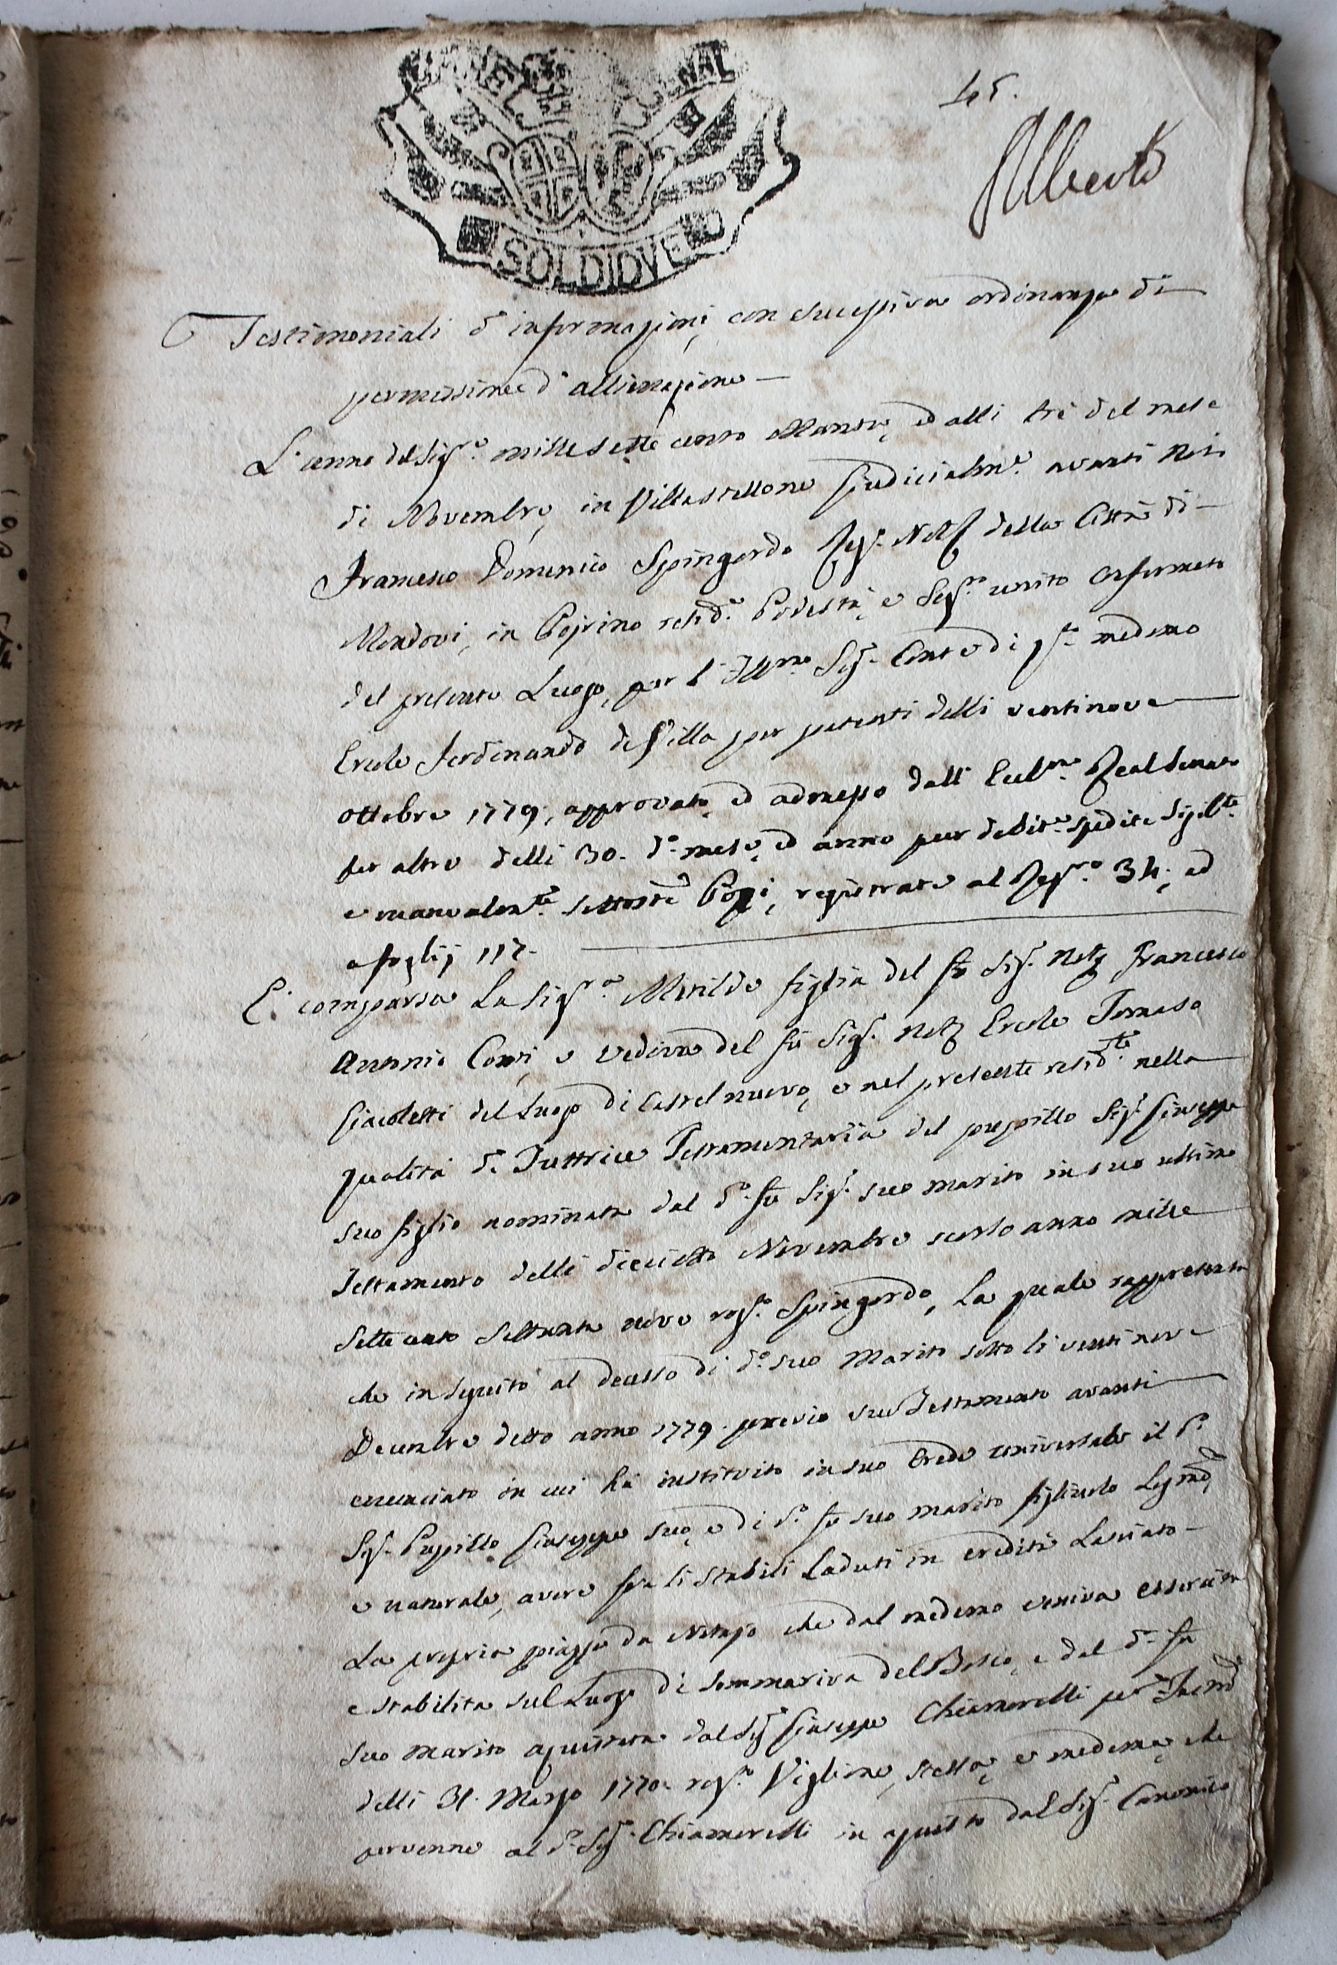 45.
Alberto
SOLDI DVE
Testimoniali d'informazioni con successiva ordinanza di
permissione d'allienazione
L'anno del Sig.e mille sette cento ottanta, ed alli tré del mese
di Novembre, in Villastellone giudicialm.e avanti Noi
Francesco Domenico Spingardo Reg.o Not.o della Città di
Mondovì, in Poirino resid.e Podestà, e Seg.ro unito confermato
del presente Luogo, per l'Ill.mo Sig. Conte di q.to medemo
Ercole Ferdinando de Villa per patenti delli ventinove
ottobre 1779, approvato, ed admesso dall'Eccl.mo Real Senato
per altre delli 30. d.o mese, ed anno pur debit.e spedite sigil.te
e manualm.te sottos.te, registrate al Reg.ro 34, ed
a foglij 117.
È comparsa La Sig.ra Matilde figlia del fù Sig. Not.o Francesco
Antonio, e vedova del fù Sig. Not.o Ercole Tomaso
Giacoletti del Luogo di Castelnuovo, e nel presente resid.te nella
qualità di Tuttrice Testamentaria del pupillo Sig. Giuseppe
suo figlio nominata dal d.o fù Sig. suo marito in suo ultimo
Testamento delli dieciotto Novembre scorso anno mille
sette cento settanta nove rog.o Spingardo, La quale rappresenta
che in seguito al decesso di d.o suo Marito sotto li venti nove
Decembre detto anno 1779. previo suo Testamento avanti
enunciato in cui hà instituito in suo Erede universale il P.
Sig. Pupillo Giuseppe suo, e di d.o fù suo marito figliuolo Legit.o
e naturale, avere fra li stabili Caduti in eredità Lasciato
La propria piazza da Notajo che dal medemo veniva esercita
e stabilita sul Luogo di Sommariva del Bosco, e dal d.o fù
suo marito aquistata dal Sig. Giuseppe Chiamorelli per
delli 31. Marzo 1770. rog.o Viglione, stessa, e medema, che
pervenne al d.o Sig. Chiamorelli in aquisto dal Sig. Canonico